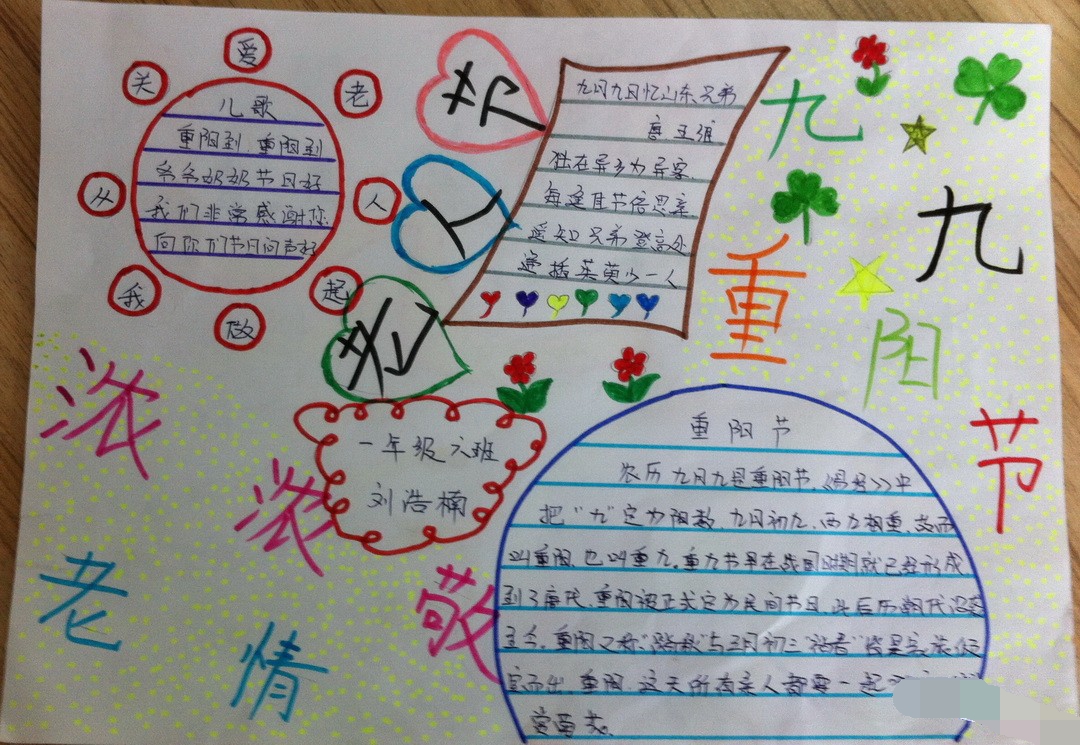 关爱老人
从我做起
儿歌
重阳到,重阳到
爷爷奶奶节日好
我们非常感谢你
向你们节日问声好
人
九月九日忆山东兄弟
唐 王维
独在异乡为异客,
每逢佳节倍思亲
遥知兄弟登高处
遍插茱萸少一人
九九重阳节
浓浓敬老情
一年级六班
刘浩楠
重阳节
农历九月九是重阳节,《易经》中
把“九”定为阳数,九月初九,两九相重,故而
叫重阳,也叫重九。重九节早在战国时期就已经形成
到了唐代,重阳被正式定为民间节日,此后历朝代沿袭
至今,重阳又称“踏秋”与三月初三“踏春”皆是
室而出,重阳,这天所有亲人都要一起
赏菊花。